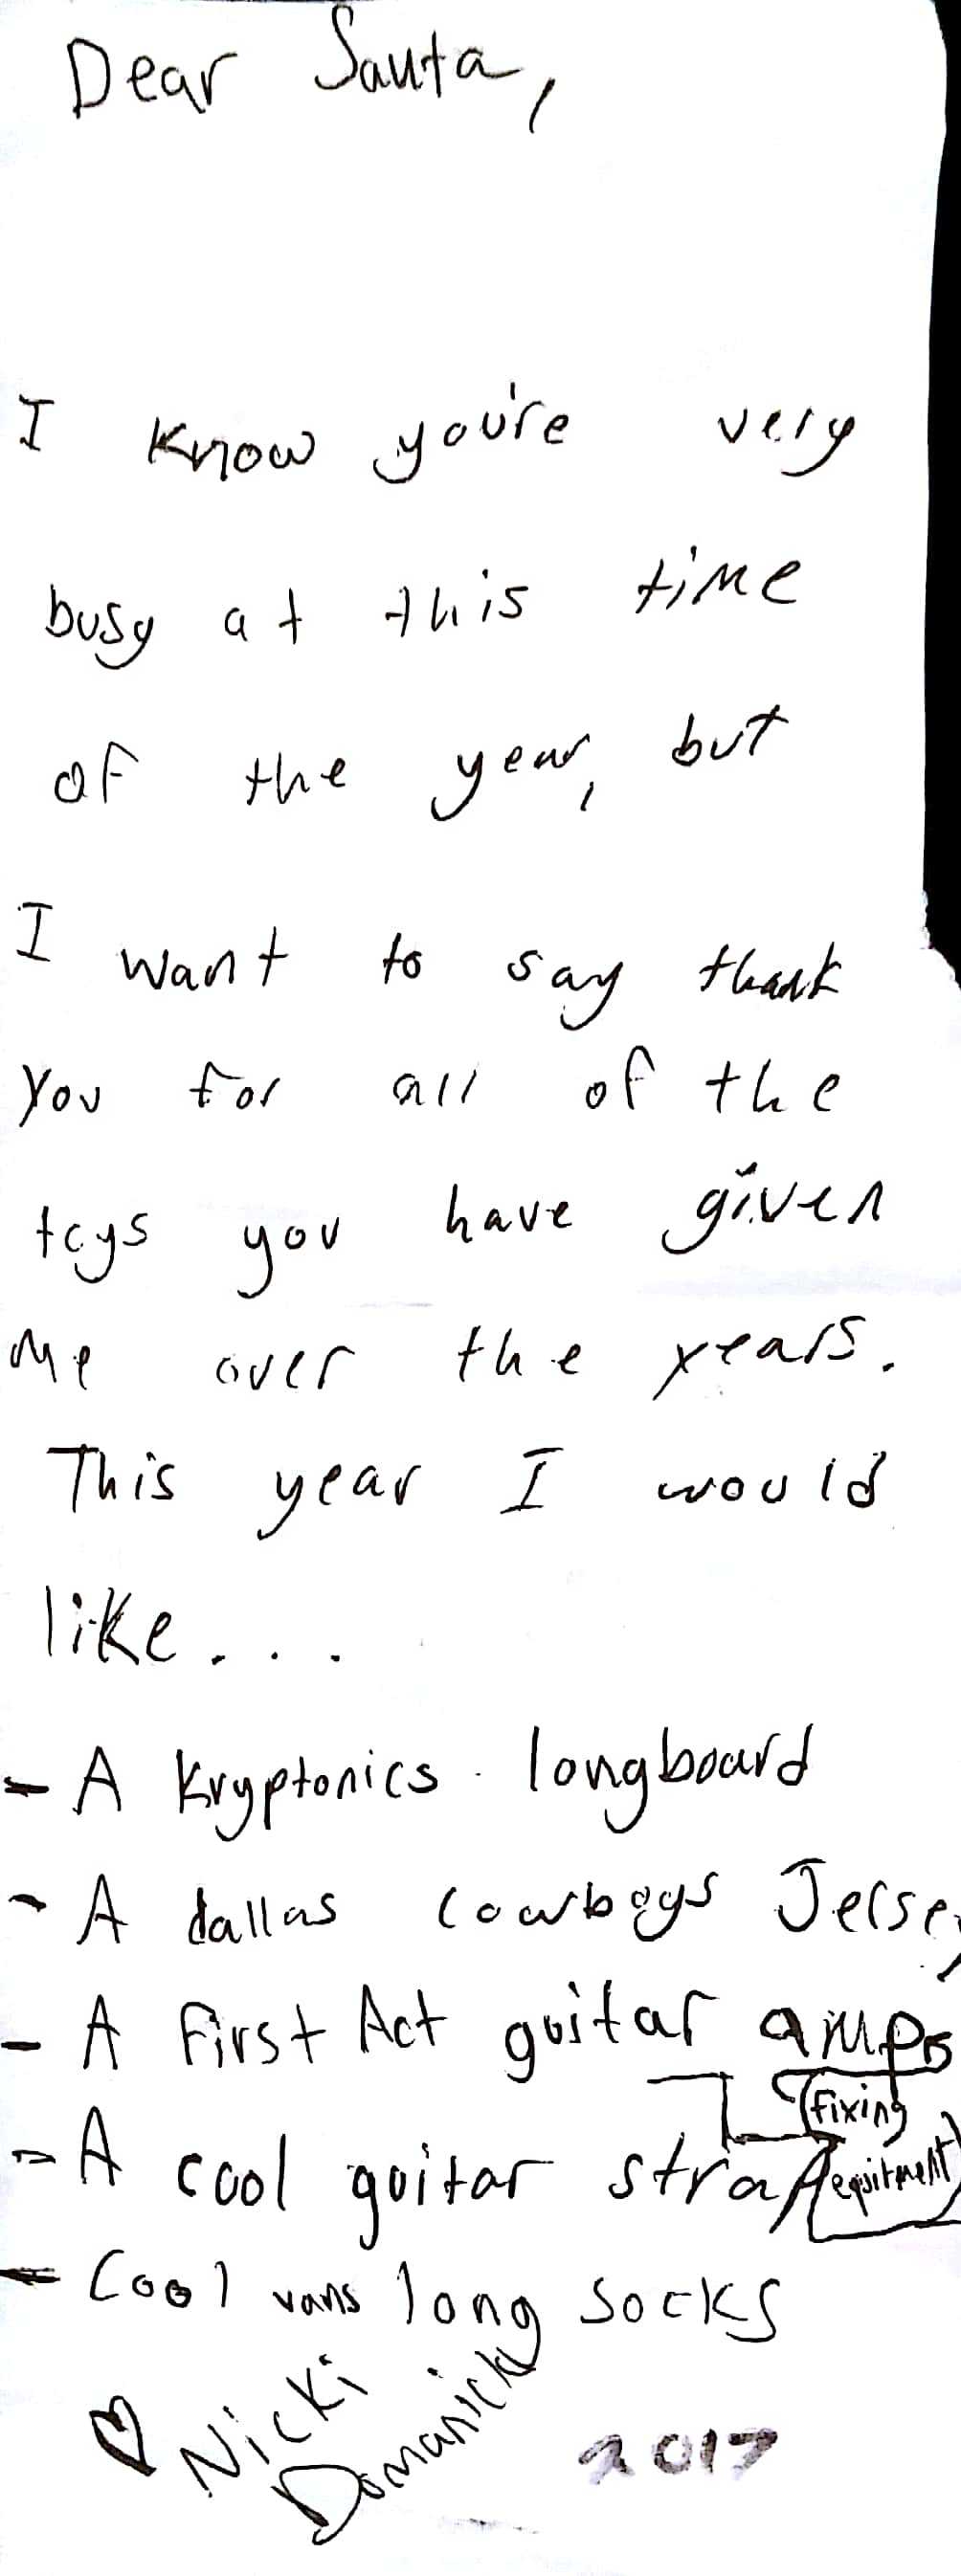 Dear Santa,
I know you're very
busy at this time
of the year, but
I want to say thank
you for all of the
toys you have given
me over the years.
This year I would
like...
- A Kryptonics longboard
- A dallas cowboys Jersey
- A First Act guitar amps
(fixing
- A cool guitar strap
equitment)
- Cool vans long socks
♡ Nicki
Domanick
2017